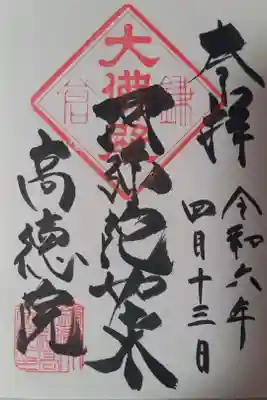 奉拝
令和六年
四月十三日
鎌倉
大佛殿
阿弥陀如来
高徳院